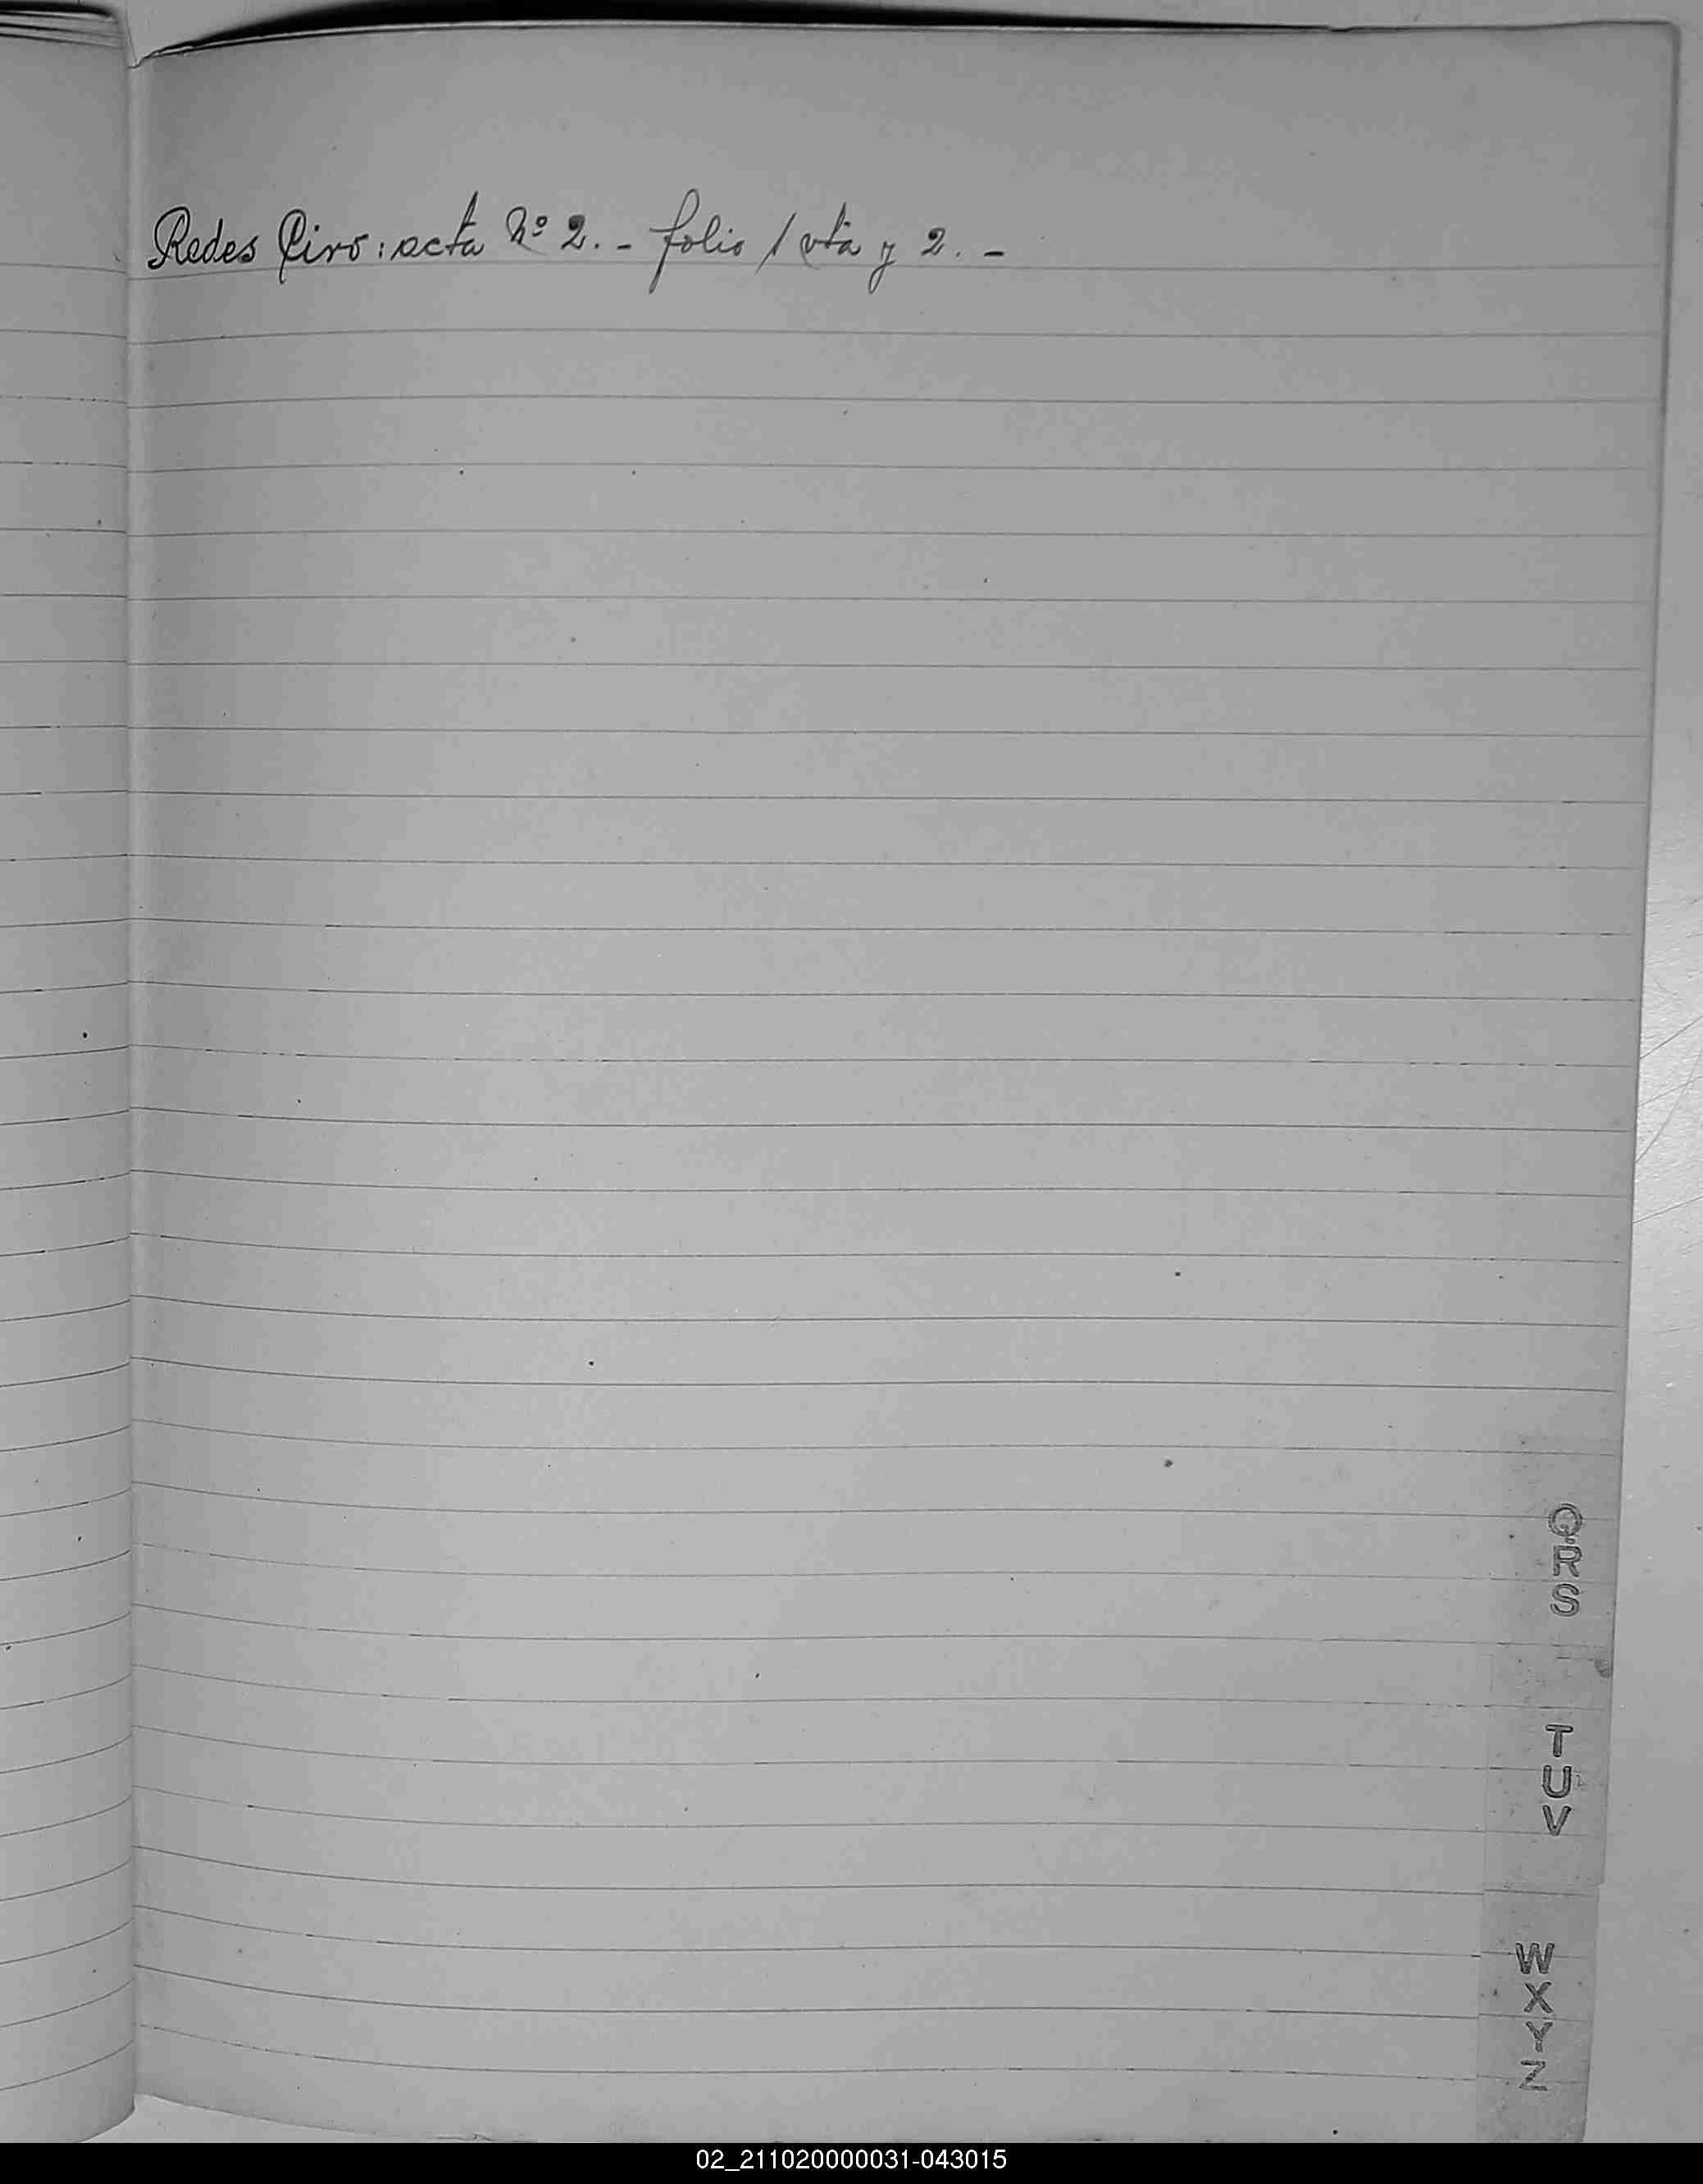 Redes Ciro: acta Nº 2. - folio 1 vta y 2. -
Q
R
S
T
U
V
W
X
Y
Z
02_211020000031-043015